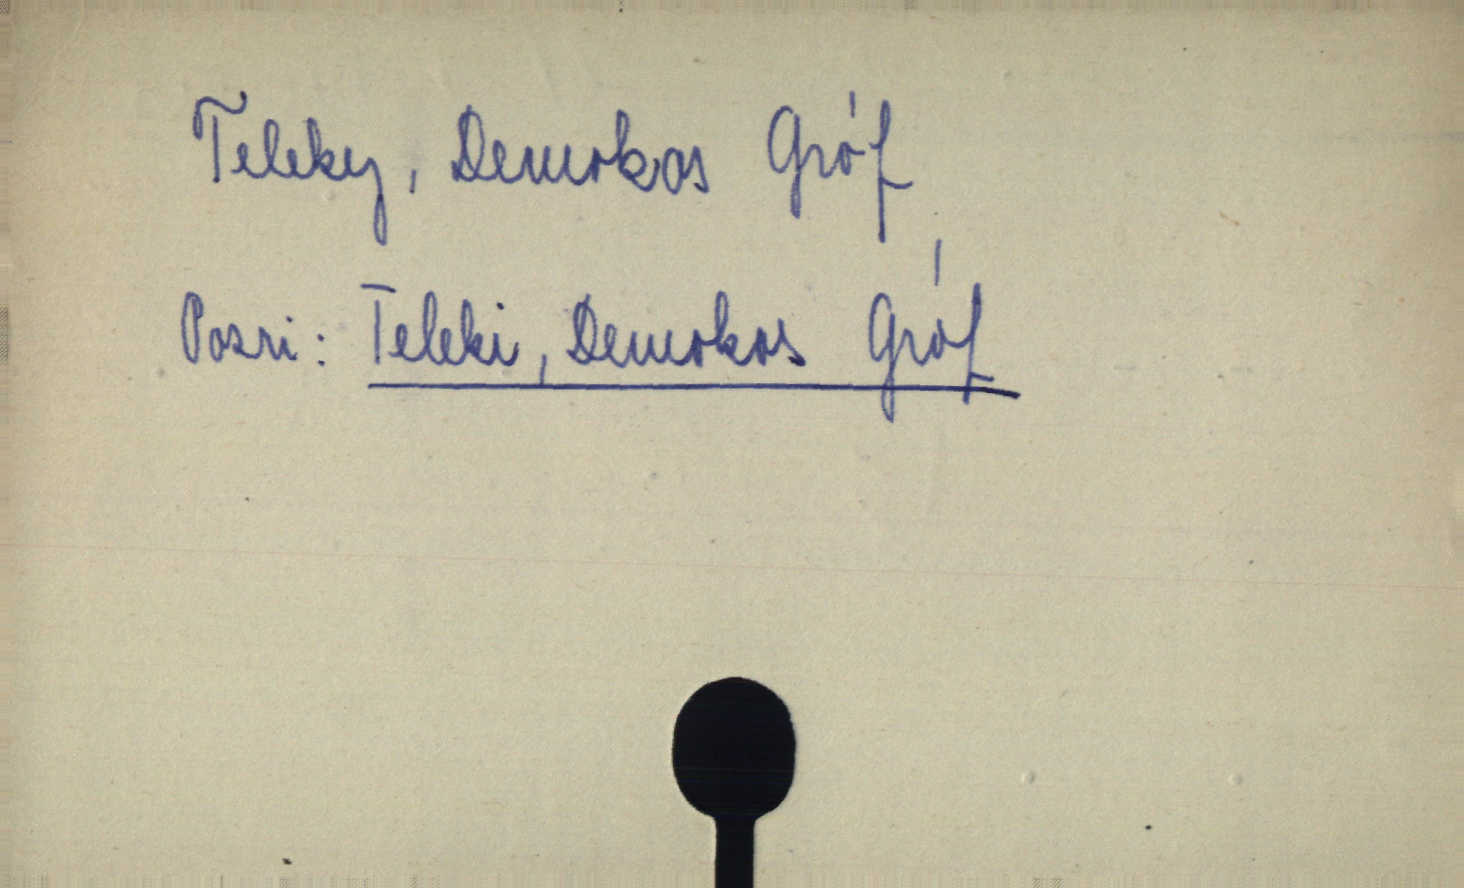 Teleky, Demokos Gróf
Pozri: Teleki, Demokos Gróf